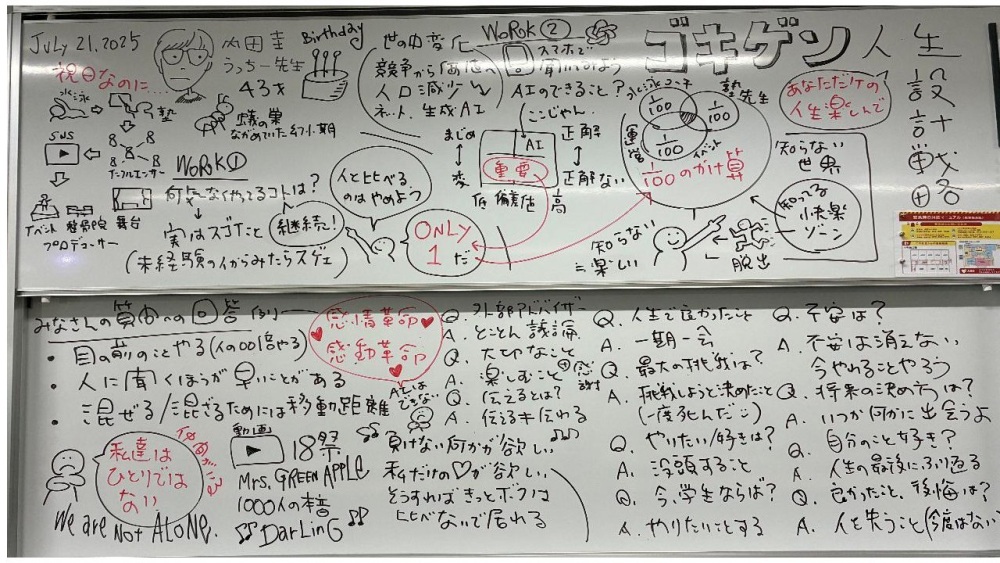 JULY 21, 2025
祝日なのに…
内田圭
うっちー先生
43才
Birthday
水泳
塾
SNS
インフルエンサー
イベント
プロデューサー
舞台
WORK①
何気なくやってるコトは?
実はスゴイこと
継続!
(未経験の人からみたらスゲェ)
人とヒベる
のはやめよう
ONLY
1だ
世の中変化
競争から価値へ
人口減少
ネット、生成AI
WORK②
スマホで
AIのできること?
ここじゃん
まじめ
変
AI
重要
低 偏差値 高
正解
正解ない
水泳コーチ
塾先生
運営
イベント
1/100
1/100
1/100
1/100のかけ算
ゴキゲン人生
設計戦略
あなただけの
人生楽しんで
知らない
世界
知ってる
快楽
ゾーン
脱出
知らない
=楽しい
みなさんの質問への回答例
・目の前のことやる(人の100倍やる)
・人に聞くほうが早いことがある
・混ぜる/混ざるためには移動距離
感情革命
感動革命
AIでは
できない
私達は
ひとりでは
ない
We are Not ALONE.
動画
18祭
Mrs. GREEN APPLE
1000人の本音
DarLinG
負けない何かが欲しい
私だけの♡が欲しい
そうすればきっとボクは
ヒベないで居れる
Q. 外部アドバイザー
A. とことん議論
Q. 大切なこと
A. 楽しむこと
Q. 伝えるとは?
A. 伝える≠伝わる
Q. 人生で良かったこと
A. 一期一会
Q. 最大の挑戦は?
A. 挑戦しようと決めたこと
Q. やりたい/好きは?
A. 没頭すること
Q. 今、学生ならば?
A. やりたいとする
Q. 不安は?
A. 不安は消えない
今やれることやろう
Q. 将来の決め方は?
A. いつか何かに出会うよ
Q. 自分のこと好き?
A. 人生の最後にふり返る
Q. 良かったこと、後悔は?
A. 人を失うこと(今度はない)